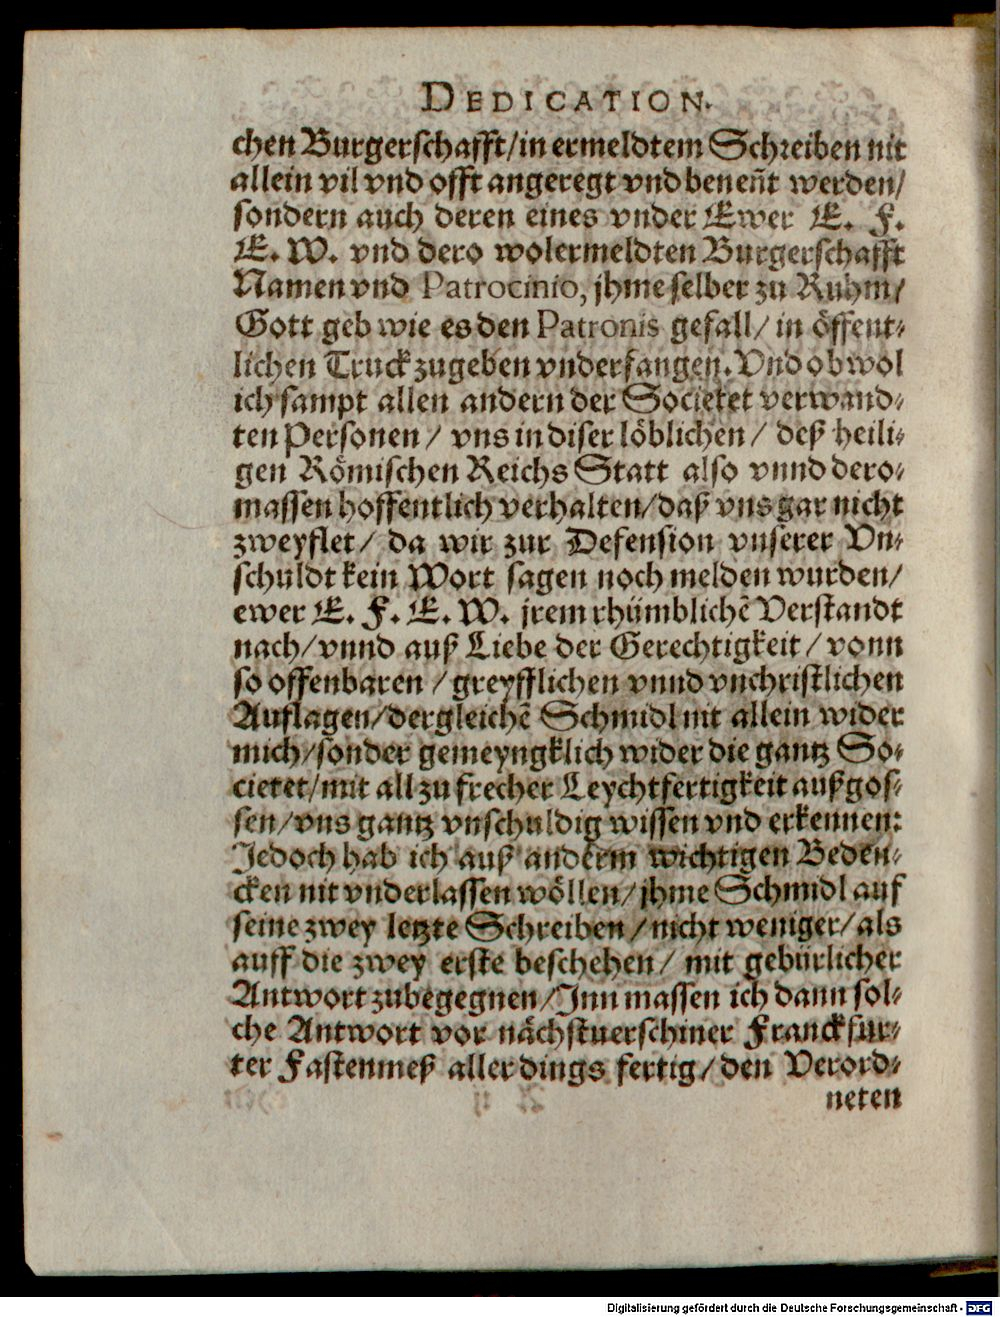 DEDICATION.
chen Burgerschafft/in ermeldtem Schreiben nit
allein vil vnd offt angeregt vnd beneñt werden/
sondern auch deren eines vnder Ewer E. F.
E. W. vnd dero wolermeldten Burgerschafft
Namen vnd Patrocinio, jhme selber zu Ruhm/
Gott geb wie es den Patronis gefall/ in öffent-
lichen Truck zugeben vnderfangen. Vnd ob wol
ich sampt allen andern der Societet verwand-
ten Personen/ vns in diser löblichen/ deß heili-
gen Römischen Reichs Statt also vnnd dero-
massen hoffentlich verhalten/daß vns gar nicht
zweyflet/ da wir zur Defension vnserer Vn-
schuldt kein Wort sagen noch melden wurden/
ewer E. F. E. W. jrem rhümblichẽ Verstandt
nach/vnnd auß Liebe der Gerechtigkeit/ vonn
so offenbaren /greyfflichen vnnd vnchristlichen
Auflagen/dergleichẽ Schmidl nit allein wider
mich/sonder gemeyngklich wider die gantz So-
cietet/mit all zu frecher Leychtfertigkeit außgos-
sen/vns gantz vnschuldig wissen vnd erkennen:
Jedoch hab ich auß anderm wichtigen Beden-
cken nit vnderlassen wöllen/jhme Schmidl auf
seine zwey letzte Schreiben/nicht weniger/als
auff die zwey erste beschehen/ mit gebürlicher
Antwort zubegegnen/Jnn massen ich dann sol-
che Antwort vor nächstuerschiner Franckfur-
ter Fastenmeß aller dings fertig/den Verord-
neten
Digitalisierung gefördert durch die Deutsche Forschungsgemeinschaft - DFG